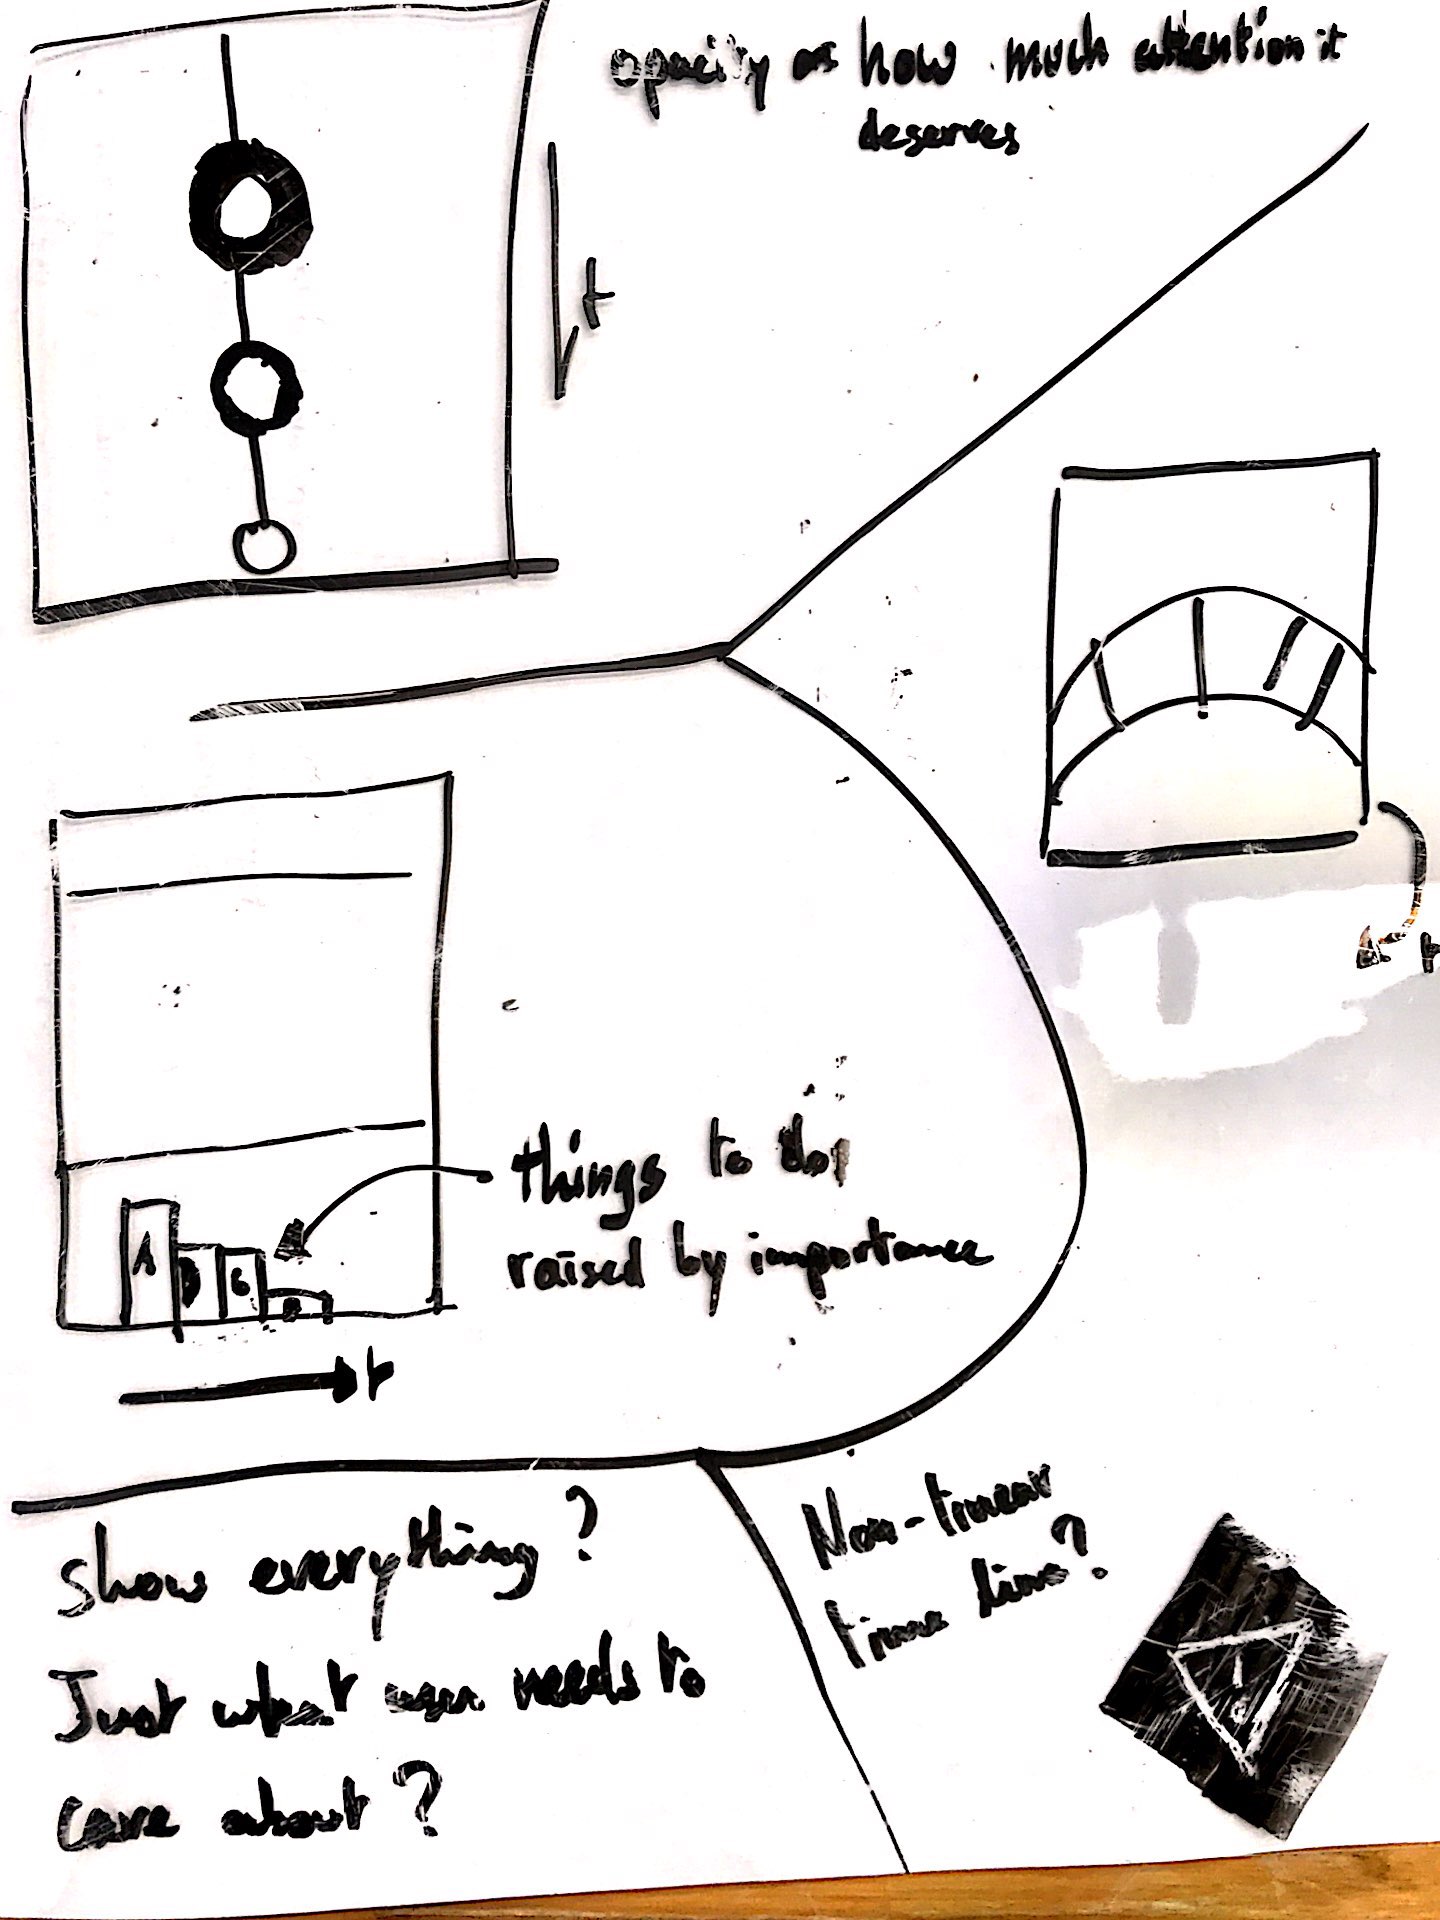 opacity as how much attention it
deserves
t
things to do,
raised by importance
A
t
show everything?
Just what user needs to
care about?
Non-linear
time line?
!